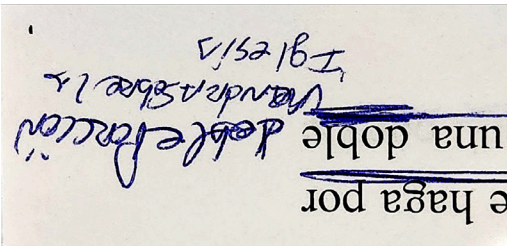 e haga por
una doble doble Porción
Vendra Sobre la
Iglesia